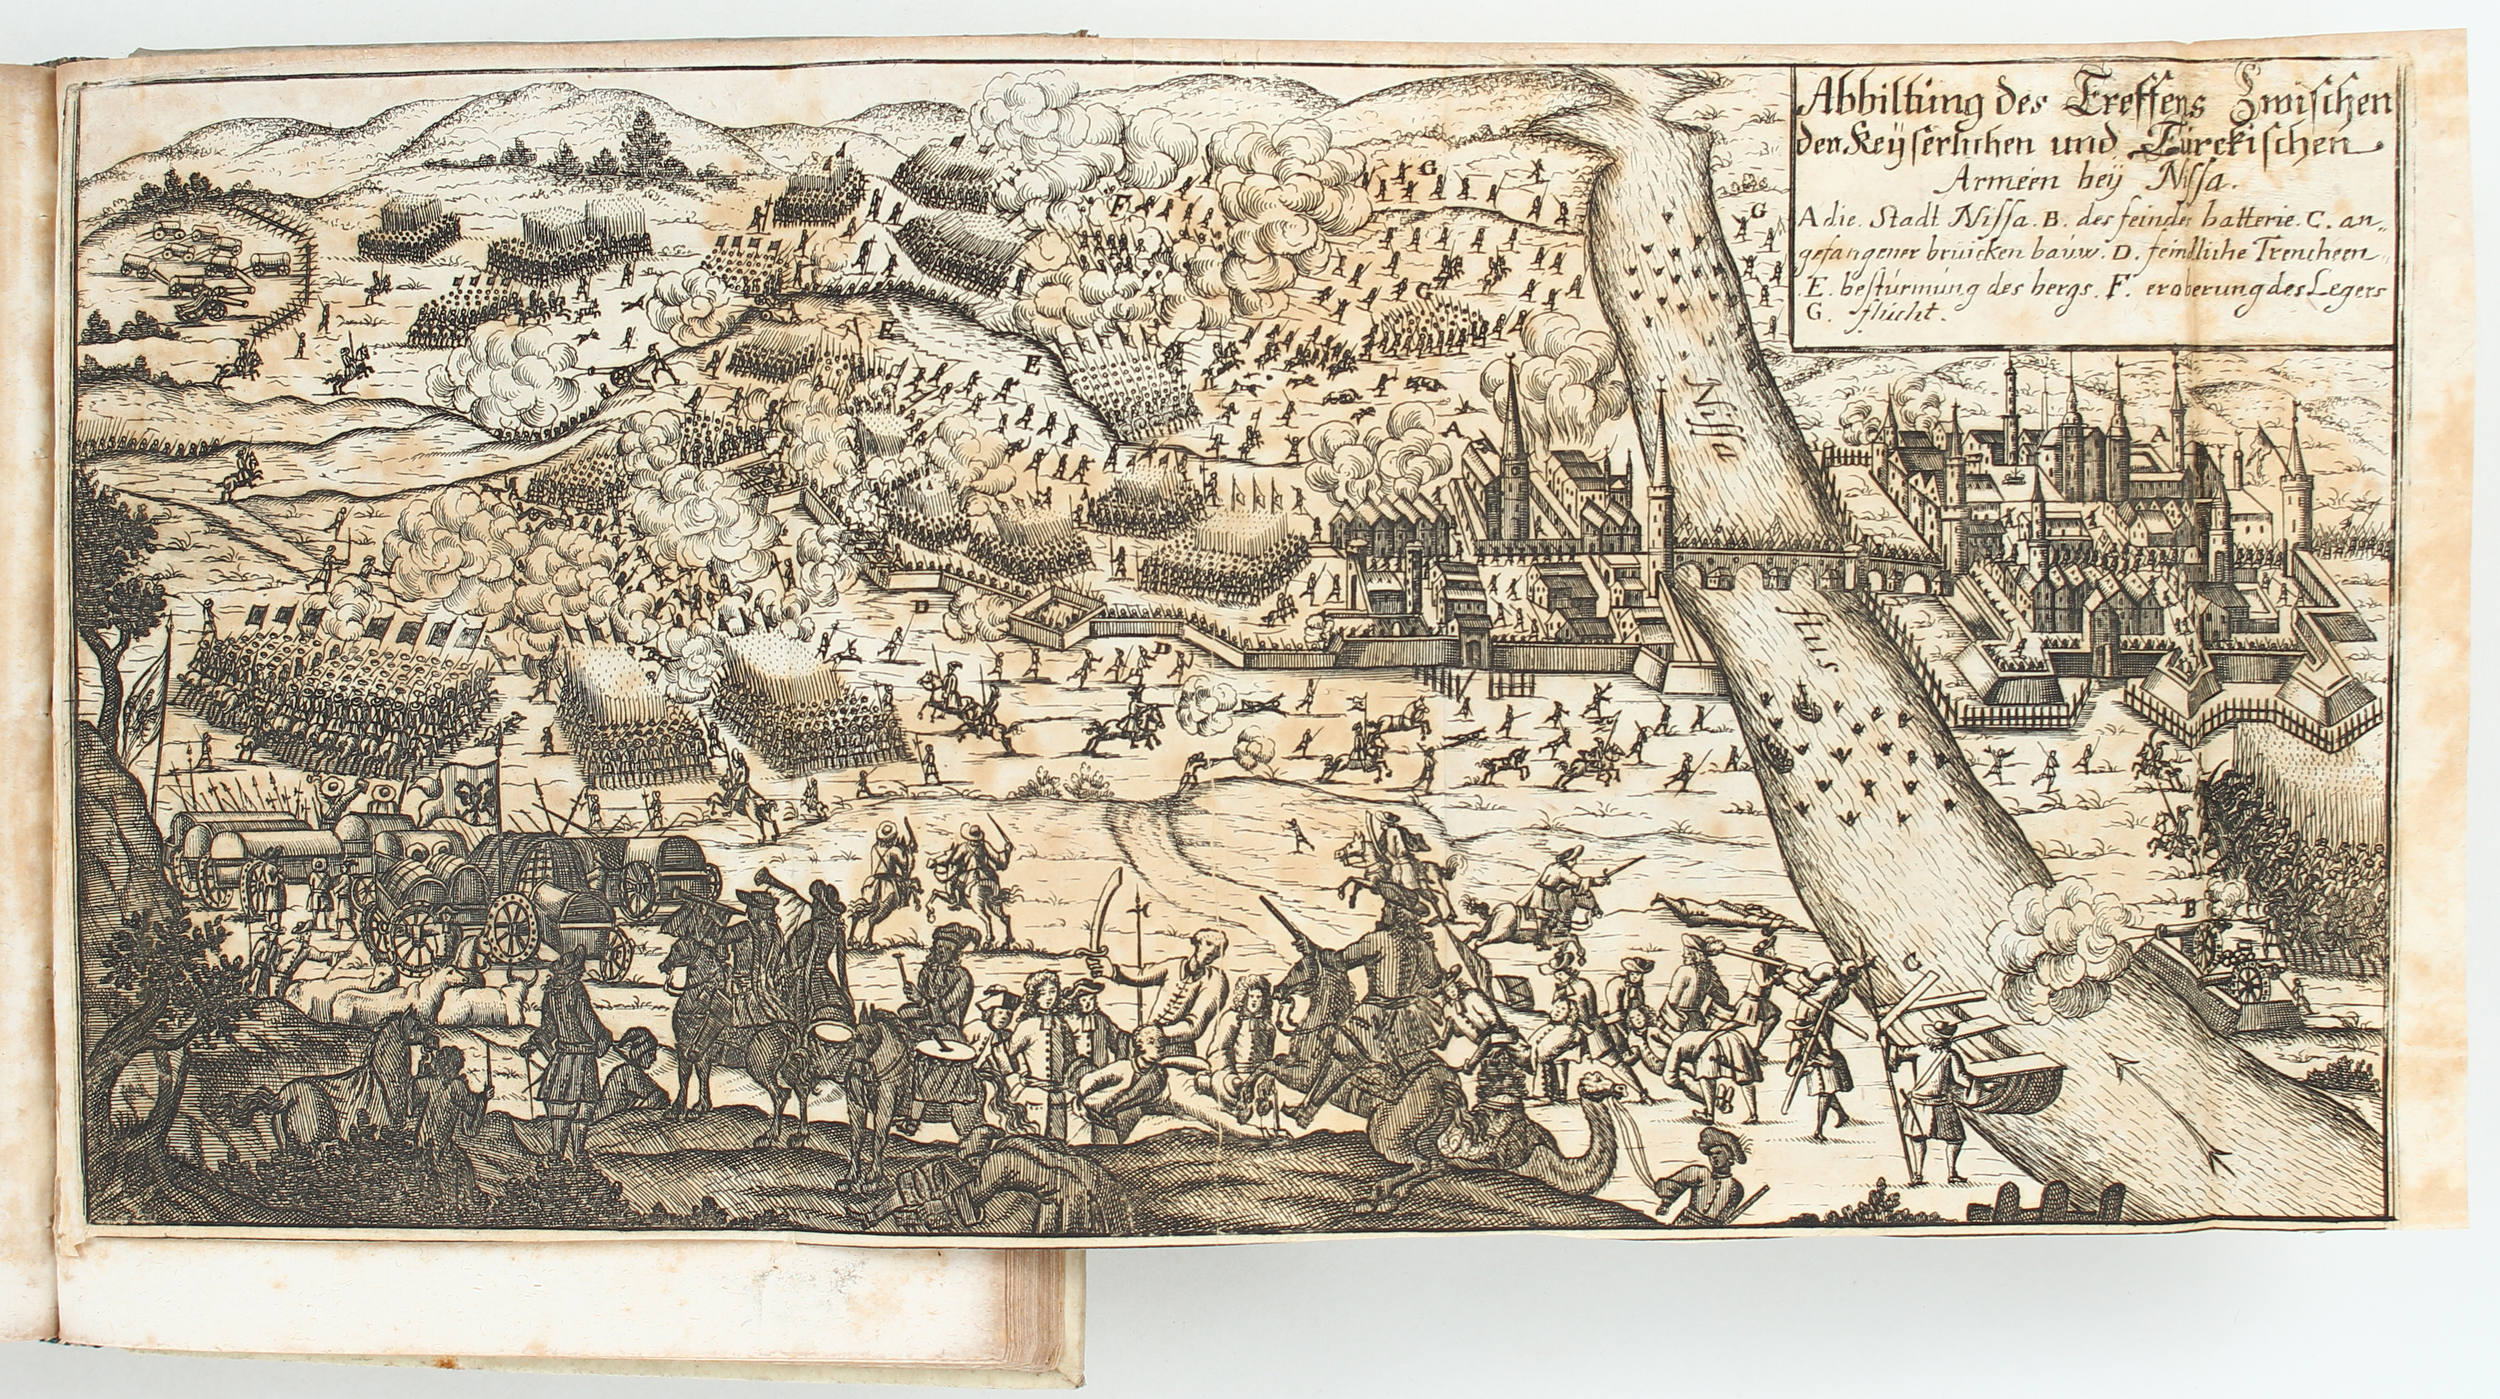 Abbiltung des Treffens Zwischen
den Keyserlichen und Türckischen
Armeen beÿ Nissa.
A die Stadt Nissa. B. des feindes batterie. C. an„
gefangener bruicken bauw. D. feindliche Trencheen„
E. besturmung des bergs. F. eroberung des Legers
G. flucht.
G
F
G
G
E
E
A
A
Nissa
flus
D
D
B
C